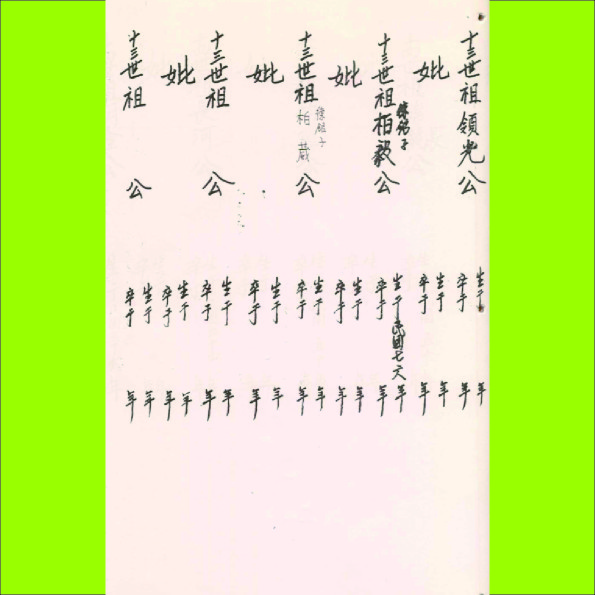 十三世祖領光公 生于 年 卒于 年
妣 生于 年 卒于 年
十三世祖柏毅公 生于民國七 年 卒于 年
妣 生于 年 卒于 年
十三世祖柏葳公 生于 年 卒于 年
妣 生于 年 卒于 年
十三世祖 公 生于 年 卒于 年
妣 生于 年 卒于 年
十三世祖 公 生于 年 卒于 年